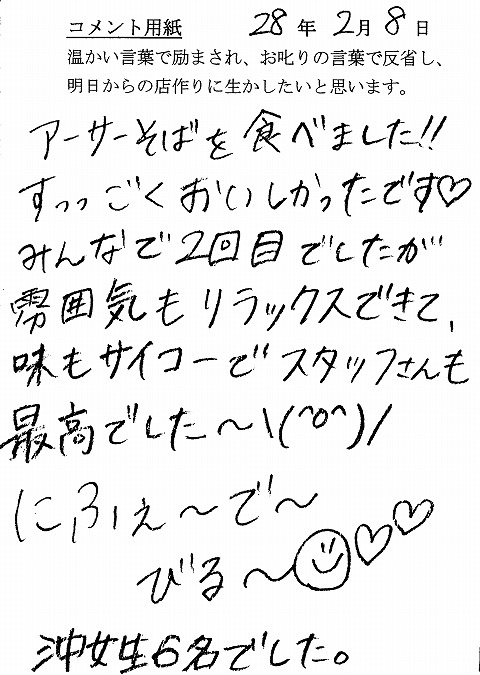 コメント用紙 28年2月8日
温かい言葉で励まされ、お叱りの言葉で反省し、
明日からの店作りに生かしたいと思います。
アーサーそばを食べました!!
すっっごくおいしかったです♡
みんなで2回目でしたが
雰囲気もリラックスできて、
味もサイコーでスタッフさんも
最高でした〜\(^o^)/
にふぇ〜で〜
びる〜☺♡♡
沖女生6名でした。